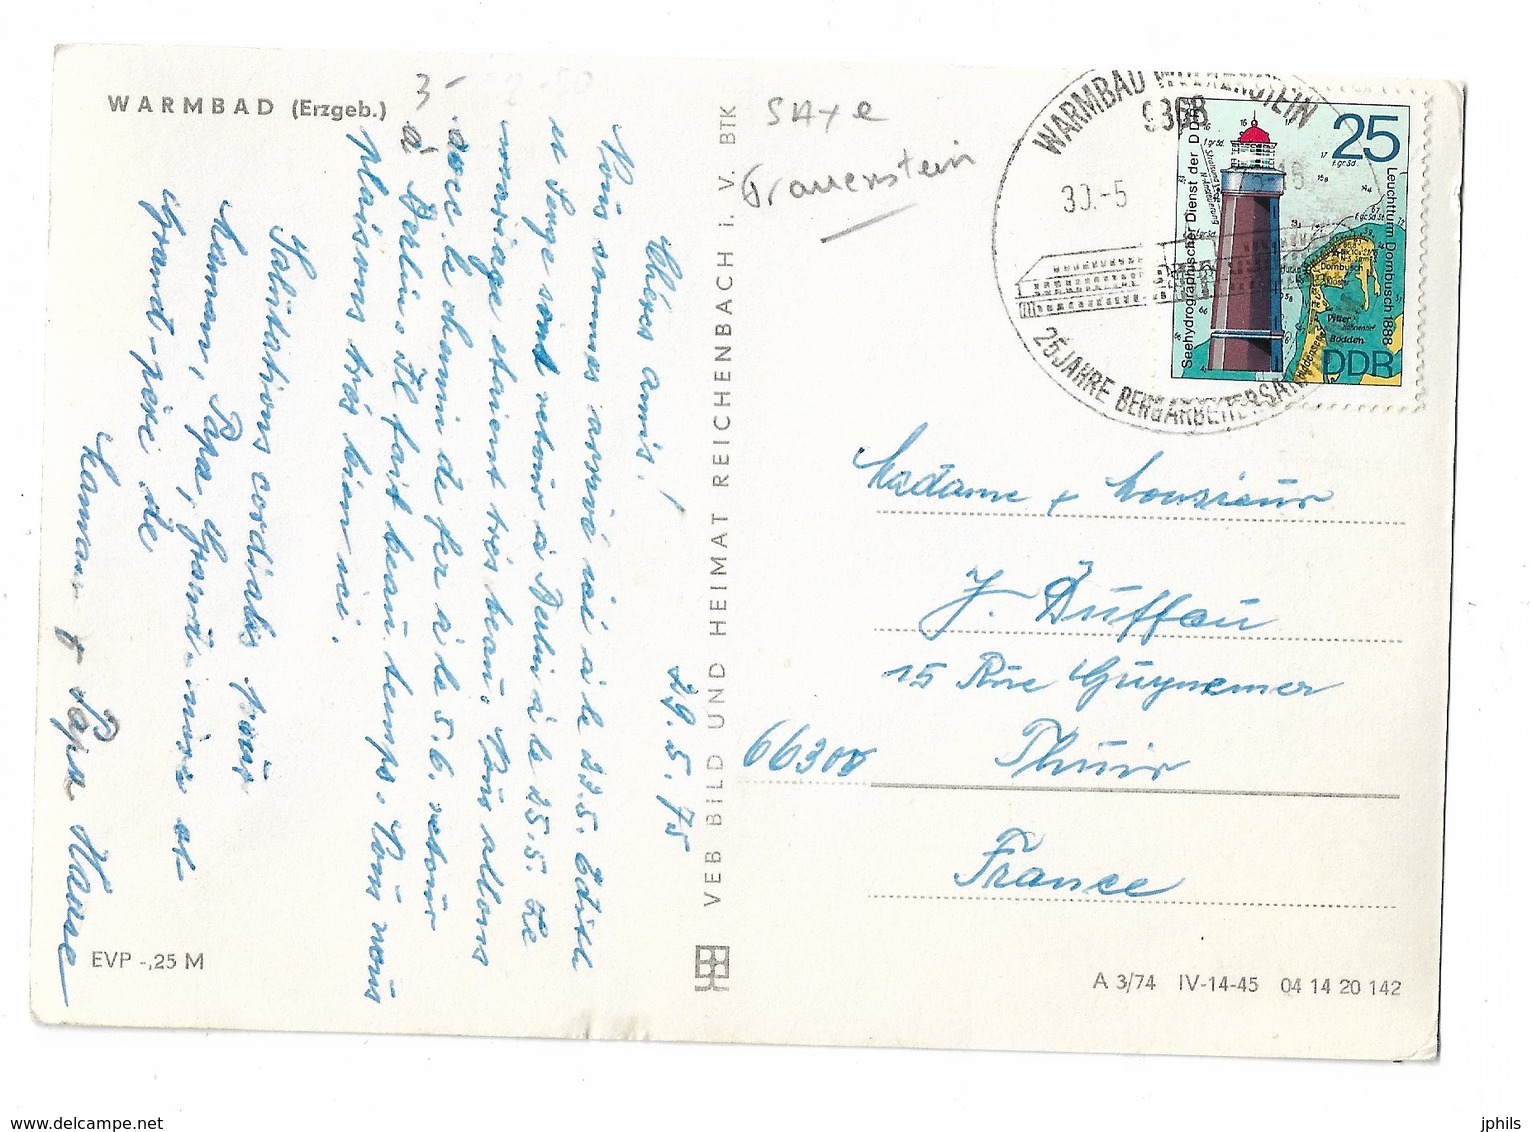 WARMBAD (Erzgeb.)
3-
Chères amis!
29.5.75
Nous sommes arrivé ici à le 22.5. Edith
et Serge sont retour à Berlin à le 25.5. Le
mariage etaient très beau. Nous allons
avec le chemin de fer à le 5.6. retour
à Berlin. Il fait beau temps. Nous nous
plaisons très bien ici.
Salutations cordiales pour
Maman, Papa, Grand-mère et
Grand-père de
Maman + Papa Hanne
EVP -,25 M
VEB BILD UND HEIMAT REICHENBACH i. V. BTK
SAxe
Frauenstein
WARMBAD WOLKENSTEIN
9368
30.-5
25 JAHRE BERGARBEITERSAN
25
Seehydrographischer Dienst der DDR
Leuchtturm Dornbusch 1888
Dornbusch
Vitter
Bodden
DDR
Madame + Monsieur
J. Duffau
15 Rue Guynemer
66300 Thuir
France
A 3/74 IV-14-45 04 14 20 142
delcampe.net
jphils